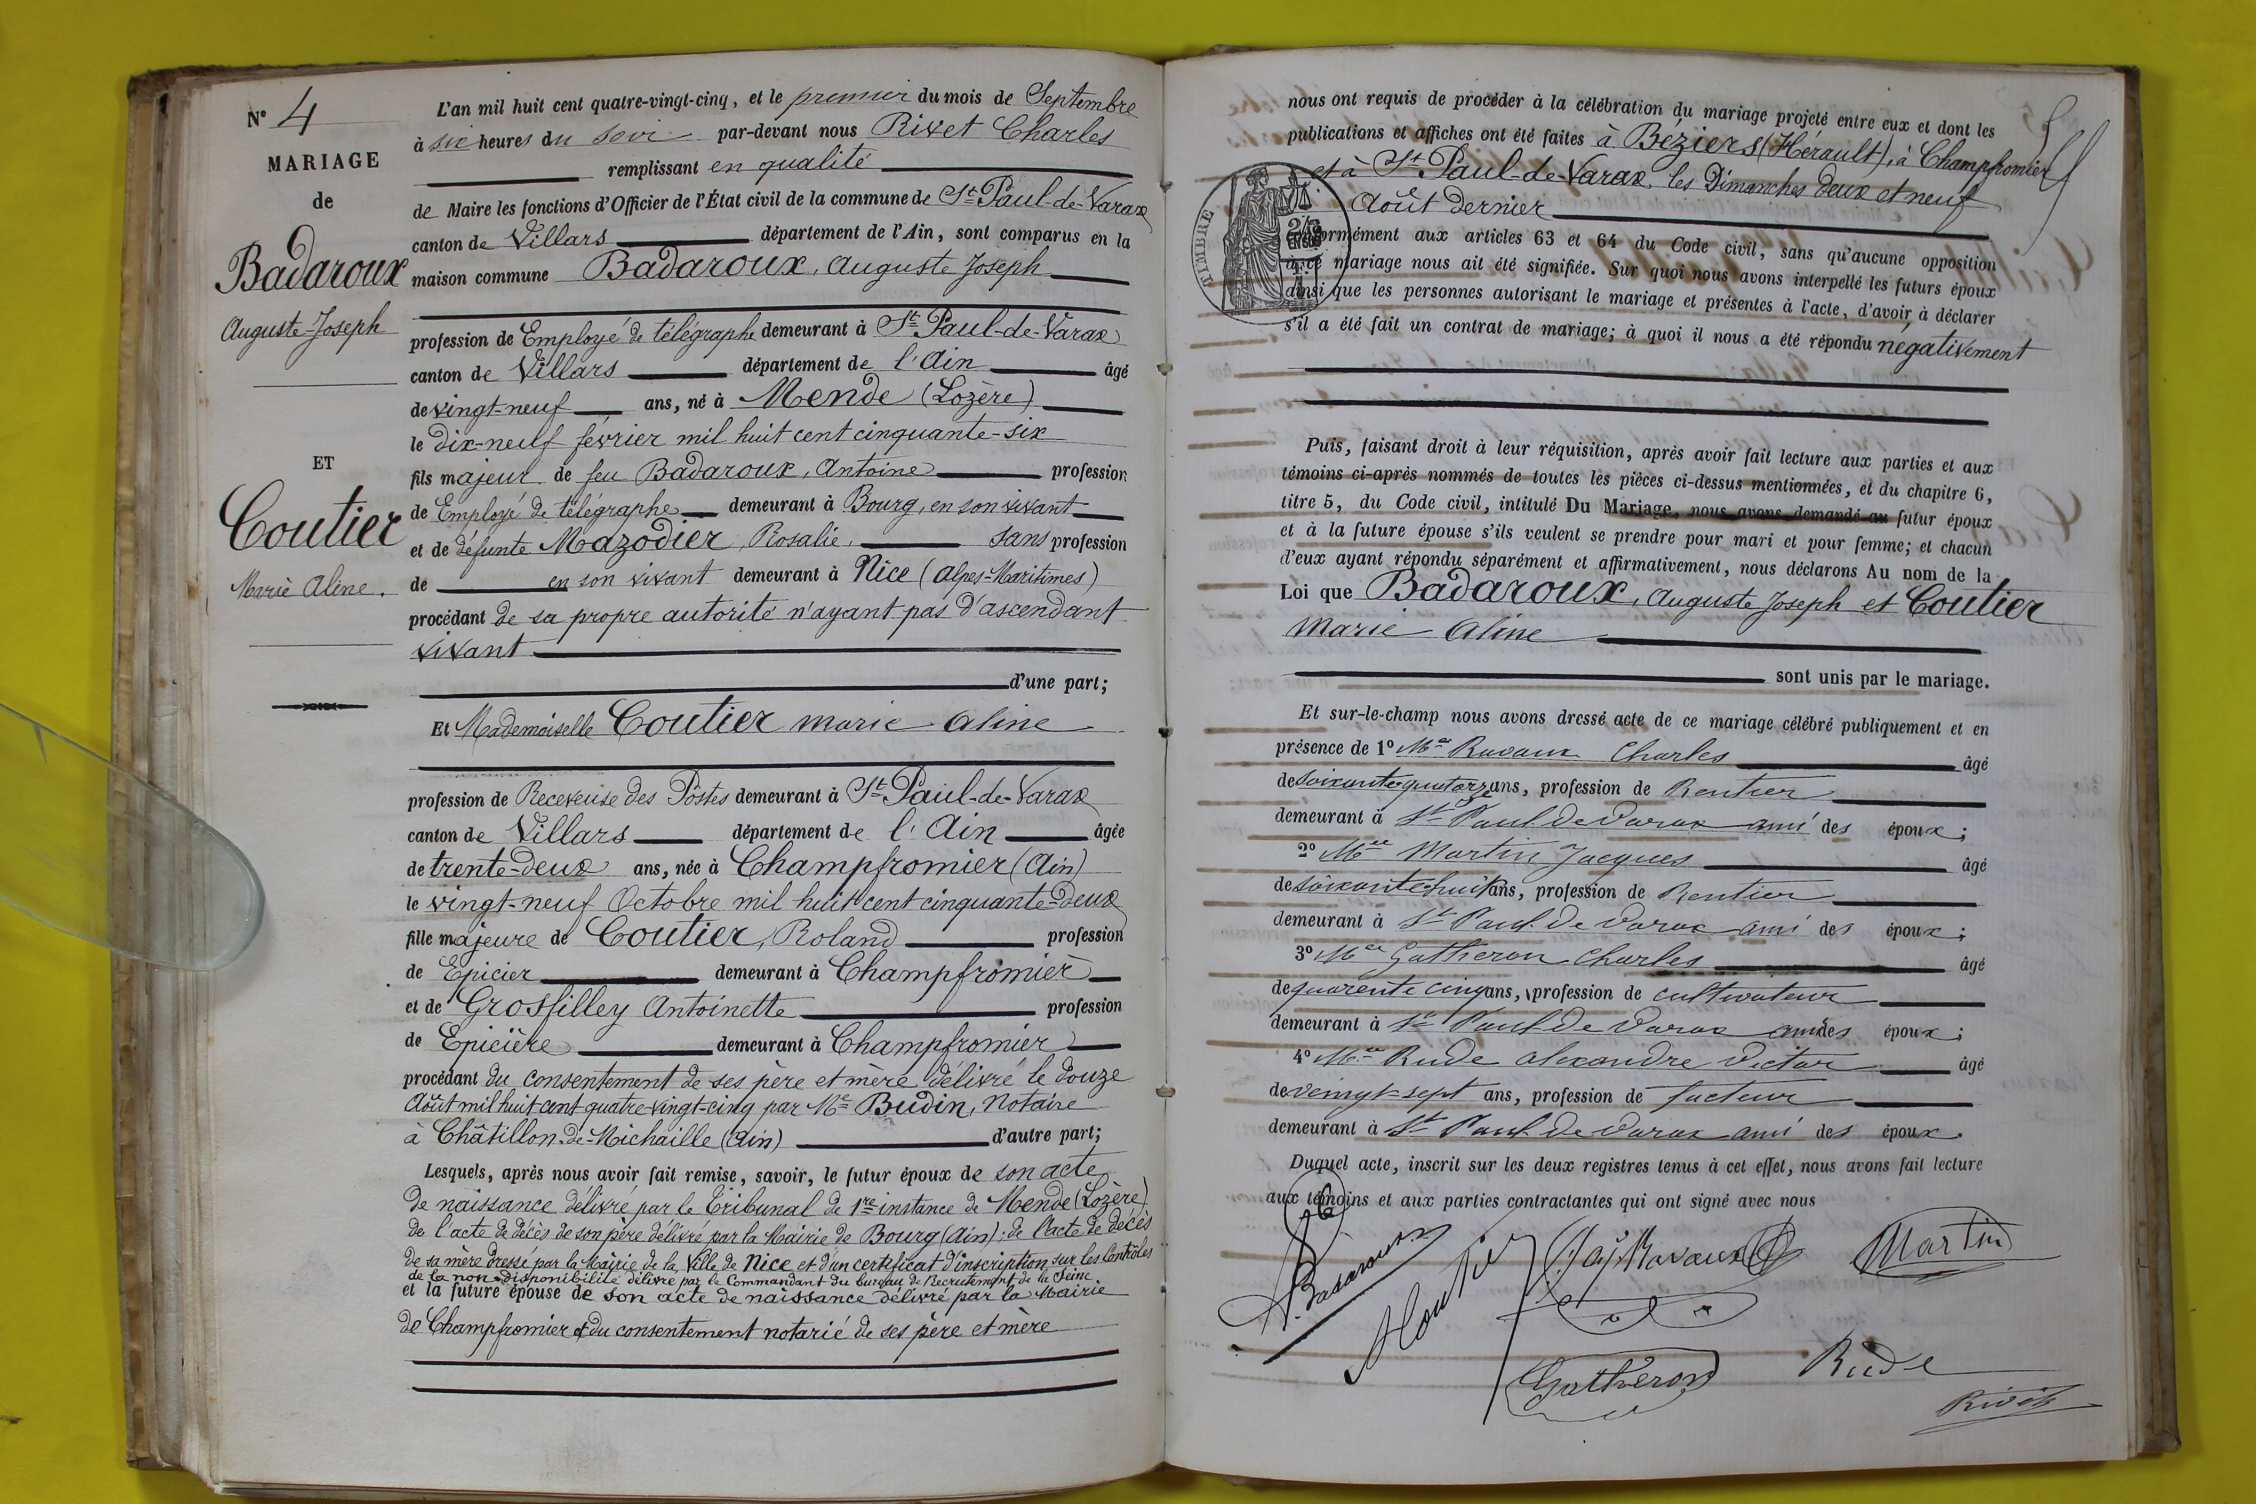 N° 4
MARIAGE
de
Badaroux
Auguste-Joseph
ET
Coutier
Marie Aline.
L'an mil huit cent quatre-vingt-cinq, et le premier du mois de Septembre
à six heures du soir par-devant nous Rivet Charles
remplissant en qualité
de Maire les fonctions d'Officier de l'État civil de la commune de St Paul-de-Varax
canton de Villars département de l'Ain, sont comparus en la
maison commune Badaroux, Auguste Joseph
profession de Employé de télégraphe demeurant à St Paul-de-Varax
canton de Villars département de l'Ain âgé
de vingt-neuf ans, né à Mende (Lozère)
le dix-neuf février mil huit cent cinquante-six
fils majeur de feu Badaroux, Antoine profession
de Employé de télégraphe demeurant à Bourg, en son vivant
et de défunte Mazodier, Rosalie, sans profession
de en son vivant demeurant à Nice (Alpes-Maritimes)
procédant de sa propre autorité n'ayant pas d'ascendant
vivant
d'une part;
Et Mademoiselle Coutier Marie Aline
profession de Receveuse des Postes demeurant à St Paul-de-Varax
canton de Villars département de l'Ain âgée
de trente-deux ans, née à Champfromier (Ain)
le vingt-neuf Octobre mil huit cent cinquante-deux
fille majeure de Coutier, Roland profession
de Epicier demeurant à Champfromier
et de Grosfilley Antoinette profession
de Epicière demeurant à Champfromier
procédant du consentement de ses père et mère délivré le douze
Août mil huit cent quatre vingt-cinq par Me Budin, Notaire
à Châtillon-de-Michaille (Ain) d'autre part;
Lesquels, après nous avoir fait remise, savoir, le futur époux de son acte
de naissance délivré par le Tribunal de 1re instance de Mende (Lozère)
de l'acte de décès de son père délivré par la Mairie de Bourg (Ain); de l'acte de décès
de sa mère dressé par la Mairie de la Ville de Nice et d'un certificat d'inscription sur les Contrôles
de la non-disponibilité délivré par le Commandant du bureau de Recrutement de la Seine
et la future épouse de son acte de naissance délivré par la Mairie
de Champfromier et du consentement notarié de ses père et mère
nous ont requis de procéder à la célébration du mariage projeté entre eux et dont les
publications et affiches ont été faites à Béziers (Hérault), à Champfromier
et à St Paul-de-Varax, les Dimanches deux et neuf
Août dernier
TIMBRE
conformément aux articles 63 et 64 du Code civil, sans qu'aucune opposition
à ce mariage nous ait été signifiée. Sur quoi nous avons interpellé les futurs époux
ainsi que les personnes autorisant le mariage et présentes à l'acte, d'avoir à déclarer
s'il a été fait un contrat de mariage; à quoi il nous a été répondu négativement
Puis, faisant droit à leur réquisition, après avoir fait lecture aux parties et aux
témoins ci-après nommés de toutes les pièces ci-dessus mentionnées, et du chapitre 6,
titre 5, du Code civil, intitulé Du Mariage, nous avons demandé au futur époux
et à la future épouse s'ils veulent se prendre pour mari et pour femme; et chacun
d'eux ayant répondu séparément et affirmativement, nous déclarons Au nom de la
Loi que Badaroux, Auguste Joseph et Coutier
Marie Aline
sont unis par le mariage.
Et sur-le-champ nous avons dressé acte de ce mariage célébré publiquement et en
présence de 1° Mr Ravaux Charles âgé
de soixante quatorze ans, profession de Rentier
demeurant à St Paul de Varax ami des époux;
2° Mr Martin Jacques âgé
de soixante huit ans, profession de Rentier
demeurant à St Paul de Varax ami des époux;
3° Mr Gatheron Charles âgé
de quarente cinq ans, profession de cultivateur
demeurant à St Paul de Varax ami des époux;
4° Mr Rude Alexandre Victor âgé
de veingt-sept ans, profession de facteur
demeurant à St Paul de Varax ami des époux.
Duquel acte, inscrit sur les deux registres tenus à cet effet, nous avons fait lecture
aux témoins et aux parties contractantes qui ont signé avec nous
Badaroux
Coutier
Ravaux
Martin
Gatheron
Rude
Rivet